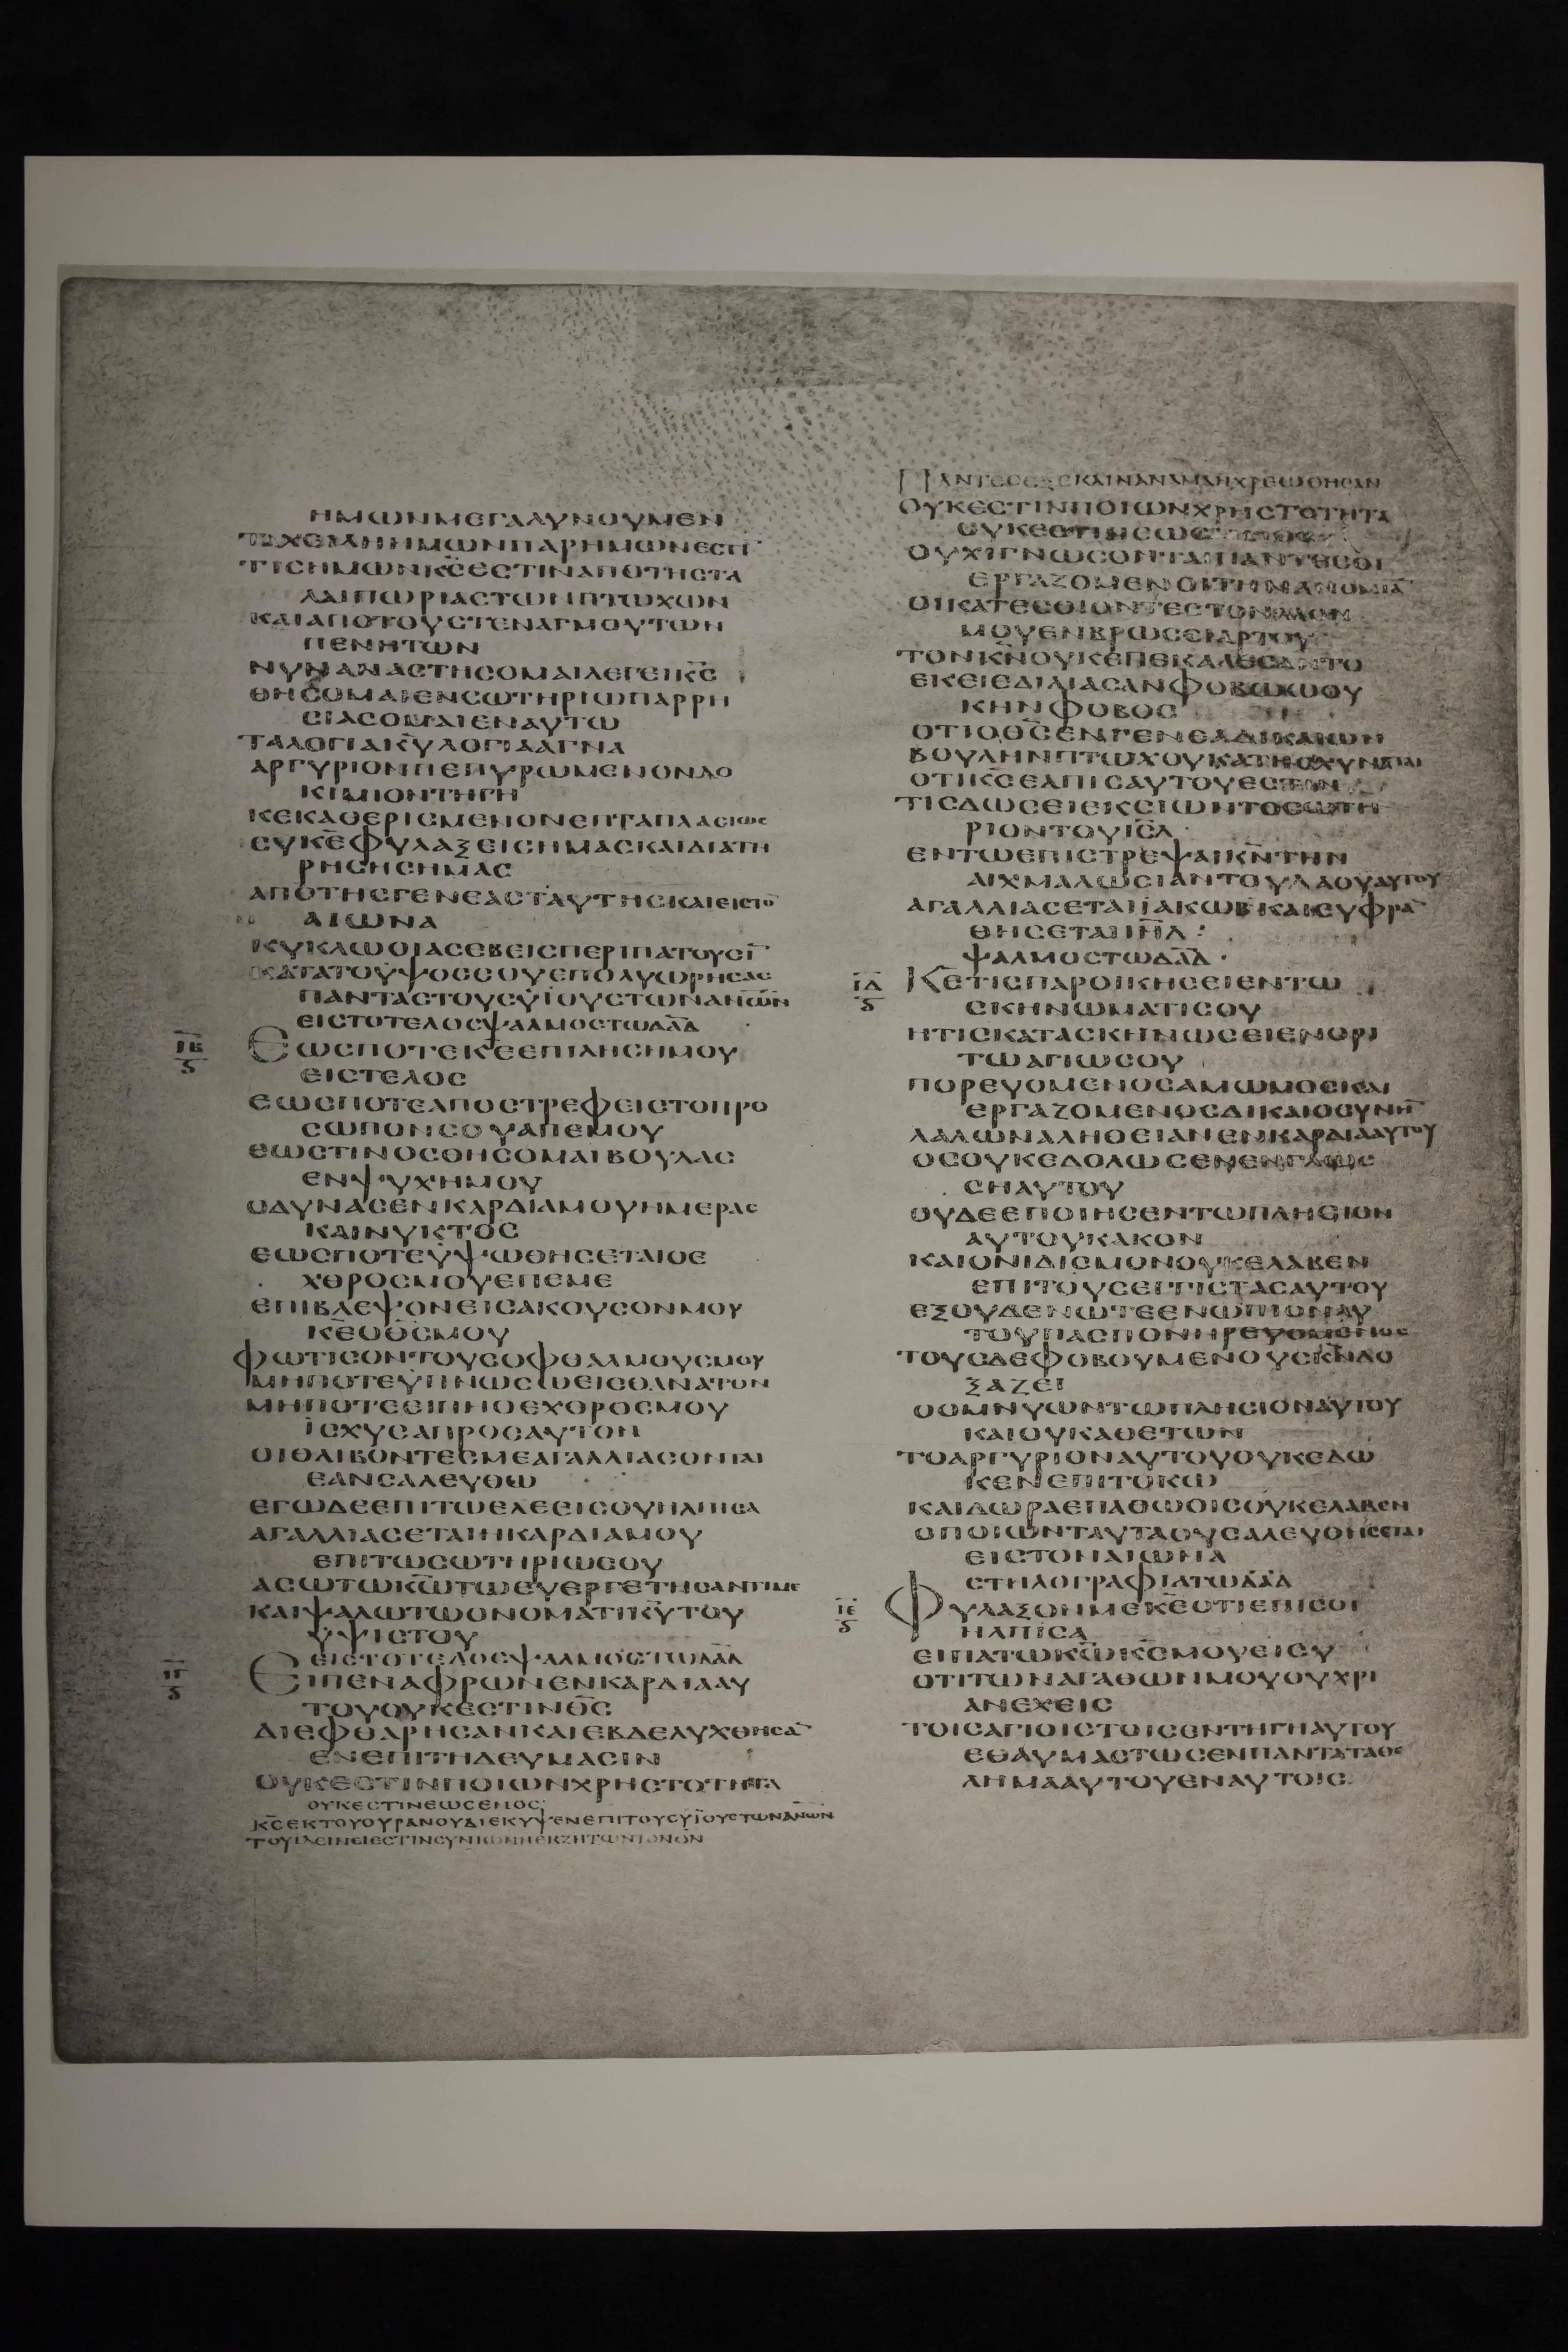 ΗΜΩΝΜΕΓΑΛΥΝΟΥΜΕΝ
ΤΑΧΕΙΛΗΗΜΩΝΠΑΡΗΜΩΝΕΣΤΙ
ΤΙΣΗΜΩΝΚ̅Σ̅ΕΣΤΙΝΑΠΟΤΗΣΤΑ
ΛΑΙΠΩΡΙΑΣΤΩΝΠΤΩΧΩΝ
ΚΑΙΑΠΟΤΟΥΣΤΕΝΑΓΜΟΥΤΩΝ
ΠΕΝΗΤΩΝ
ΝΥΝΑΝΑΣΤΗΣΟΜΑΙΛΕΓΕΙΚ̅Σ̅
ΘΗΣΟΜΑΙΕΝΣΩΤΗΡΙΩΠΑΡΡΗ
ΣΙΑΣΟΜΑΙΕΝΑΥΤΩ
ΤΑΛΟΓΙΑΚ̅Υ̅ΛΟΓΙΑΑΓΝΑ
ΑΡΓΥΡΙΟΝΠΕΠΥΡΩΜΕΝΟΝΔΟ
ΚΙΜΙΟΝΤΗΓΗ
ΚΕΚΑΘΕΡΙΣΜΕΝΟΝΕΠΤΑΠΛΑΣΙΩΣ
ΣΥΚ̅Ε̅ΦΥΛΑΞΕΙΣΗΜΑΣΚΑΙΔΙΑΤΗ
ΡΗΣΗΣΗΜΑΣ
ΑΠΟΤΗΣΓΕΝΕΑΣΤΑΥΤΗΣΚΑΙΕΙΣΤΟ̅
ΑΙΩΝΑ
ΚΥΚΛΩΟΙΑΣΕΒΕΙΣΠΕΡΙΠΑΤΟΥΣΙ̅
ΚΑΤΑΤΟΥΨΟΣΣΟΥΕΠΟΛΥΩΡΗΣΑΣ
ΠΑΝΤΑΣΤΟΥΣΥΪΟΥΣΤΩΝΑ̅Ν̅Ω̅Ν̅
ΕΙΣΤΟΤΕΛΟΣΨΑΛΜΟΣΤΩΔ̅Α̅Δ̅
ΙΒ ΕΩΣΠΟΤΕΚ̅Ε̅ΕΠΙΛΗΣΗΜΟΥ
ΕΙΣΤΕΛΟΣ
ΕΩΣΠΟΤΕΑΠΟΣΤΡΕΦΕΙΣΤΟΠΡΟ
ΣΩΠΟΝΣΟΥΑΠΕΜΟΥ
ΕΩΣΤΙΝΟΣΘΗΣΟΜΑΙΒΟΥΛΑΣ
ΕΝΨΥΧΗΜΟΥ
ΟΔΥΝΑΣΕΝΚΑΡΔΙΑΜΟΥΗΜΕΡΑΣ
ΚΑΙΝΥΚΤΟΣ
ΕΩΣΠΟΤΕΥΨΩΘΗΣΕΤΑΙΟΕ
ΧΘΡΟΣΜΟΥΕΠΕΜΕ
ΕΠΙΒΛΕΨΟΝΕΙΣΑΚΟΥΣΟΝΜΟΥ
Κ̅Ε̅ΟΘ̅Σ̅ΜΟΥ
ΦΩΤΙΣΟΝΤΟΥΣΟΦΘΑΛΜΟΥΣΜΟΥ
ΜΗΠΟΤΕΥΠΝΩΣΩΕΙΣΘΑΝΑΤΟΝ
ΜΗΠΟΤΕΕΙΠΗΟΕΧΘΡΟΣΜΟΥ
ΙΣΧΥΣΑΠΡΟΣΑΥΤΟΝ
ΟΙΘΛΙΒΟΝΤΕΣΜΕΑΓΑΛΛΙΑΣΟΝΤΑΙ
ΕΑΝΣΑΛΕΥΘΩ
ΕΓΩΔΕΕΠΙΤΩΕΛΕΕΙΣΟΥΗΛΠΙΣΑ
ΑΓΑΛΛΙΑΣΕΤΑΙΗΚΑΡΔΙΑΜΟΥ
ΕΠΙΤΩΣΩΤΗΡΙΩΣΟΥ
ΑΣΩΤΩΚ̅Ω̅ΤΩΕΥΕΡΓΕΤΗΣΑΝΤΙΜΕ
ΚΑΙΨΑΛΩΤΩΟΝΟΜΑΤΙΚ̅Υ̅ΤΟΥ
ΥΨΙΣΤΟΥ
ΕΙΣΤΟΤΕΛΟΣΨΑΛΜΟΣΤΩΔ̅Α̅Δ̅
ΙΓ ΕΙΠΕΝΑΦΡΩΝΕΝΚΑΡΔΙΑΑΥ
ΤΟΥΟΥΚΕΣΤΙΝΘ̅Σ̅
ΔΙΕΦΘΑΡΗΣΑΝΚΑΙΕΒΔΕΛΥΧΘΗΣΑ̅
ΕΝΕΠΙΤΗΔΕΥΜΑΣΙΝ
ΟΥΚΕΣΤΙΝΠΟΙΩΝΧΡΗΣΤΟΤΗΤΑ
ΟΥΚΕΣΤΙΝΕΩΣΕΝΟΣ
Κ̅Σ̅ΕΚΤΟΥΟΥΡΑΝΟΥΔΙΕΚΥΨΕΝΕΠΙΤΟΥΣΥΪΟΥΣΤΩΝΑ̅Ν̅Ω̅Ν̅
ΤΟΥΙΔΕΙΝΕΙΕΣΤΙΝΣΥΝΙΩΝΗΕΚΖΗΤΩΝΤΟΝΘ̅Ν̅
ΠΑΝΤΕΣΕΞΕΚΛΙΝΑΝΑΜΑΗΧΡΕΩΘΗΣΑΝ
ΟΥΚΕΣΤΙΝΠΟΙΩΝΧΡΗΣΤΟΤΗΤΑ
ΟΥΚΕΣΤΙΝΕΩΣ
ΟΥΧΙΓΝΩΣΟΝΤΑΙΠΑΝΤΕΣΟΙ
ΕΡΓΑΖΟΜΕΝΟΙΤΗΝΑΝΟΜΙΑ̅
ΟΙΚΑΤΕΣΘΙΟΝΤΕΣΤΟΝΛΑΟΝ
ΜΟΥΕΝΒΡΩΣΕΙΑΡΤΟΥ
ΤΟΝΚ̅Ν̅ΟΥΚΕΠΕΚΑΛΕΣΑΝΤΟ
ΕΚΕΙΕΔΙΛΙΑΣΑΝΦΟΒΩΚΟΘΥ
ΚΗΝΦΟΒΟΣ
ΟΤΙΟΘ̅Σ̅ΕΝΓΕΝΕΑΔΙΚΑΙΩΝ
ΒΟΥΛΗΝΠΤΩΧΟΥΚΑΤΗΣΧΥΝΑΤΑΙ
ΟΤΙΚ̅Σ̅ΕΛΠΙΣΑΥΤΟΥΕΣΤΙΝ
ΤΙΣΔΩΣΕΙΕΚΣΙΩΝΤΟΣΩΤΗ
ΡΙΟΝΤΟΥΙ̅Σ̅Λ̅
ΕΝΤΩΕΠΙΣΤΡΕΨΑΙΚ̅Ν̅ΤΗΝ
ΑΙΧΜΑΛΩΣΙΑΝΤΟΥΛΑΟΥΑΥΤΟΥ
ΑΓΑΛΛΙΑΣΕΤΑΙΙΑΚΩΒΚΑΙΕΥΦΡΑ̅
ΘΗΣΕΤΑΙΙ̅Η̅Λ̅:
ΨΑΛΜΟΣΤΩΔ̅Α̅Δ̅·
ΙΔ Κ̅Ε̅ΤΙΣΠΑΡΟΙΚΗΣΕΙΕΝΤΩ
ΣΚΗΝΩΜΑΤΙΣΟΥ
ΗΤΙΣΚΑΤΑΣΚΗΝΩΣΕΙΕΝΟΡΙ
ΤΩΑΓΙΩΣΟΥ
ΠΟΡΕΥΟΜΕΝΟΣΑΜΩΜΟΣΚΑΙ
ΕΡΓΑΖΟΜΕΝΟΣΔΙΚΑΙΟΣΥΝΗ̅
ΛΑΛΩΝΑΛΗΘΕΙΑΝΕΝΚΑΡΔΙΑΑΥΤΟΥ
ΟΣΟΥΚΕΔΟΛΩΣΕΝΕΝΓΛΩΣ
ΣΗΑΥΤΟΥ
ΟΥΔΕΕΠΟΙΗΣΕΝΤΩΠΛΗΣΙΟΝ
ΑΥΤΟΥΚΑΚΟΝ
ΚΑΙΟΝΙΔΙΣΜΟΝΟΥΚΕΛΑΒΕΝ
ΕΠΙΤΟΥΣΕΓΓΙΣΤΑΣΑΥΤΟΥ
ΕΞΟΥΔΕΝΩΤΕΕΝΩΠΙΟΝΑΥ
ΤΟΥΠΑΣΠΟΝΗΡΕΥΟΜΕΝΟΣ
ΤΟΥΣΔΕΦΟΒΟΥΜΕΝΟΥΣΚ̅Ν̅ΔΟ
ΞΑΖΕΙ
ΟΟΜΝΥΩΝΤΩΠΛΗΣΙΟΝΑΥΤΟΥ
ΚΑΙΟΥΚΑΘΕΤΩΝ
ΤΟΑΡΓΥΡΙΟΝΑΥΤΟΥΟΥΚΕΔΩ
ΚΕΝΕΠΙΤΟΚΩ
ΚΑΙΔΩΡΑΕΠΑΘΩΟΙΣΟΥΚΕΛΑΒΕΝ
ΟΠΟΙΩΝΤΑΥΤΑΟΥΣΑΛΕΥΘΗΣΕΤΑΙ
ΕΙΣΤΟΝΑΙΩΝΑ
ΣΤΗΛΟΓΡΑΦΙΑΤΩΔ̅Α̅Δ̅
ΙΕ ΦΥΛΑΞΟΝΜΕΚ̅Ε̅ΟΤΙΕΠΙΣΟΙ
ΗΛΠΙΣΑ
ΕΙΠΑΤΩΚ̅Ω̅Κ̅Σ̅ΜΟΥΕΙΣΥ
ΟΤΙΤΩΝΑΓΑΘΩΝΜΟΥΟΥΧΡΙ
ΑΝΕΧΕΙΣ
ΤΟΙΣΑΓΙΟΙΣΤΟΙΣΕΝΤΗΓΗΑΥΤΟΥ
ΕΘΑΥΜΑΣΤΩΣΕΝΠΑΝΤΑΤΑΘΕ
ΛΗΜΑΑΥΤΟΥΕΝΑΥΤΟΙΣ